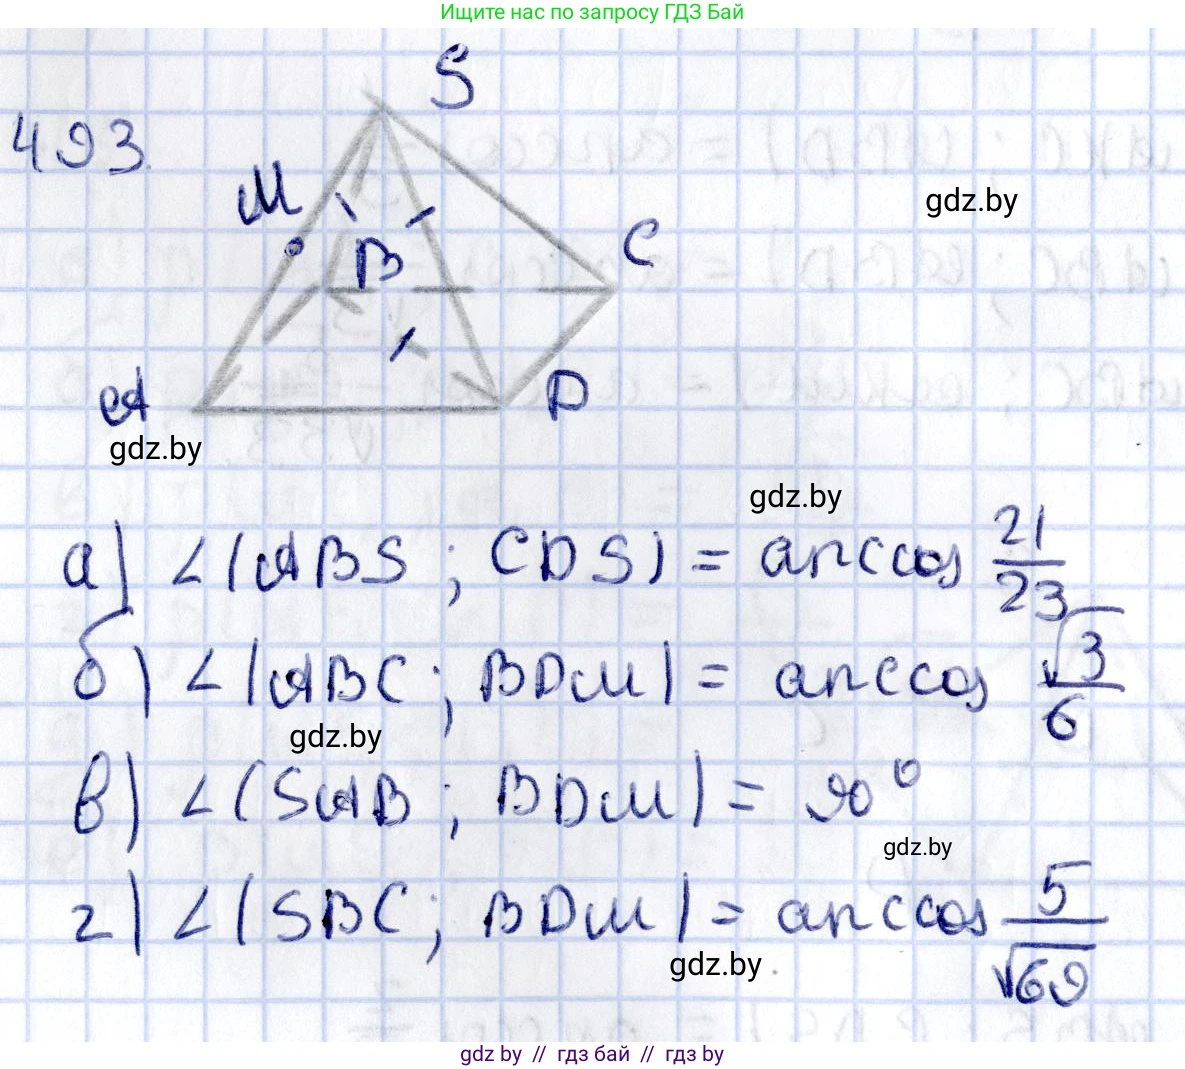 Ищите нас по запросу ГДЗ Бай
S
493.
M
gdz.by
B
C
A
D
gdz.by
gdz.by
а) ∠(ABS; CDS) = arccos 21/23
б) ∠(ABC; BDM) = arccos √3/6
gdz.by
в) ∠(SAB; BDM) = 90°
gdz.by
г) ∠(SBC; BDM) = arccos 5/√69
gdz.by
gdz by // гдз бай // гдз by